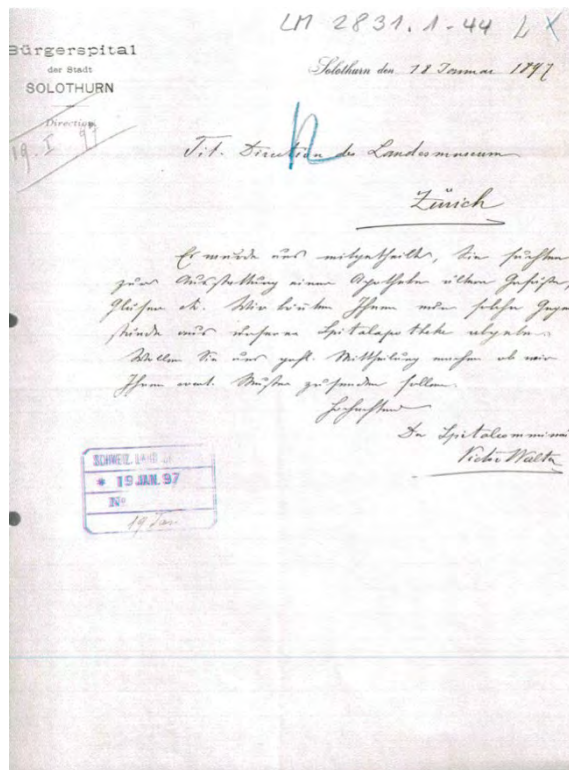 LM 2831.1-44 L X
Bürgerspital
der Stadt
SOLOTHURN
Direction
Solothurn den 18 Januar 1897
19. I 97
Tit. Direction des Landesmuseum
Zürich
Es wurde uns mitgetheilt, Sie suchten
zur Ausstattung einer Apotheke ältere Gefässe,
Gläser etc. Wir könnten Ihnen nun solche Gegen
stände aus unserer Spitalapotheke abgeben.
Wollen Sie uns gefl. Mittheilung machen ob wir
Ihnen event. Muster zusenden sollen.
Hochachtend
Der Spitalcommissi
Victor Walter
SCHWEIZ. LAND
* 19 JAN. 97
No
19 Jan